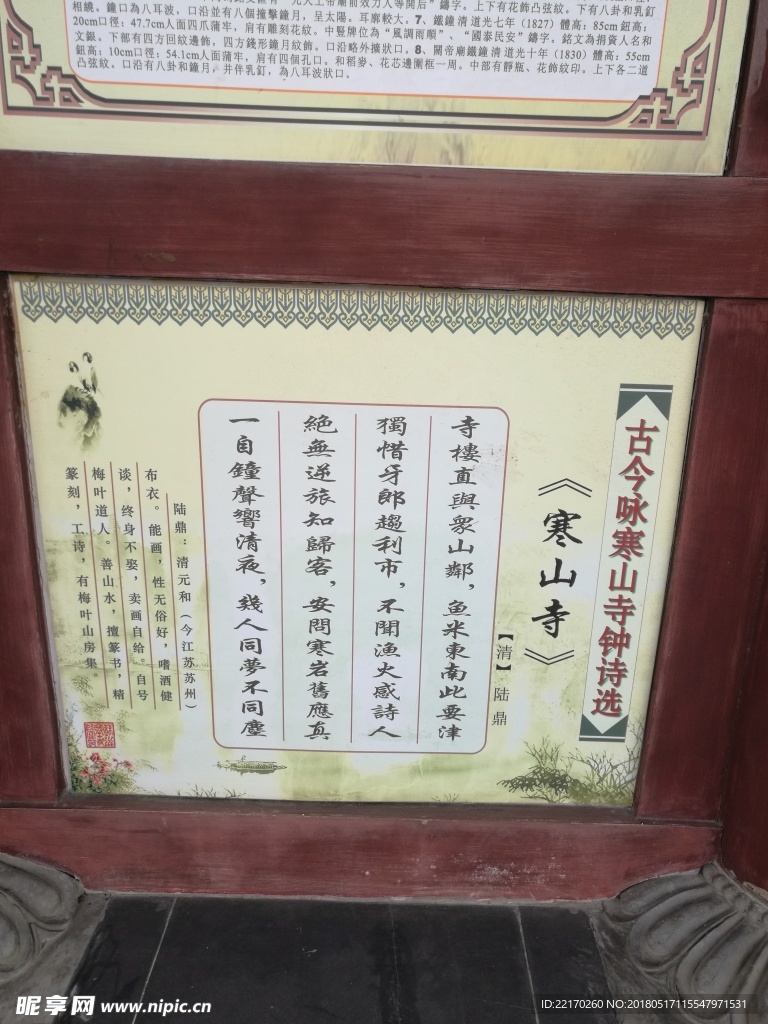 相繞。鐘口為八耳波，口沿並有八個撞擊鐘月，呈太陽。耳廓較大。7、鐵鐘清道光七年（1827）體高：85cm鈕高：
20cm口徑：47.7cm人面四爪蒲牢，肩有雕刻花紋。中豎牌位為“風調雨順”、“國泰民安”鑄字。銘文為捐資人名和
文銀。下部有四方回紋邊飾，四方錢形鐘月紋飾。口沿略外擴狀口。8、關帝廟鐵鐘清道光十年（1830）體高：55cm
鈕高：10cm口徑：54.1cm人面蒲牢，肩有四個孔口。和稻麥、花芯邊圍框一周。中部有靜瓶、花飾紋印。上下各二道
凸弦紋。口沿有八卦和鐘月，并伴乳釘，為八耳波狀口。
古今咏寒山寺钟诗选
《寒山寺》
【清】陆鼎
寺樓直與衆山鄰，魚米東南此要津
獨惜牙郎趨利市，不聞漁火感詩人
絕無逆旅知歸客，安問寒岩舊應真
一自鐘聲響清夜，幾人同夢不同塵
陆鼎：清元和（今江苏苏州）
布衣。能画，性无俗好，嗜酒健
谈，终身不娶，卖画自给。自号
梅叶道人。善山水，擅篆书，精
篆刻，工诗，有梅叶山房集。
昵享网 www.nipic.cn
ID:22170260 NO:20180517115547971531